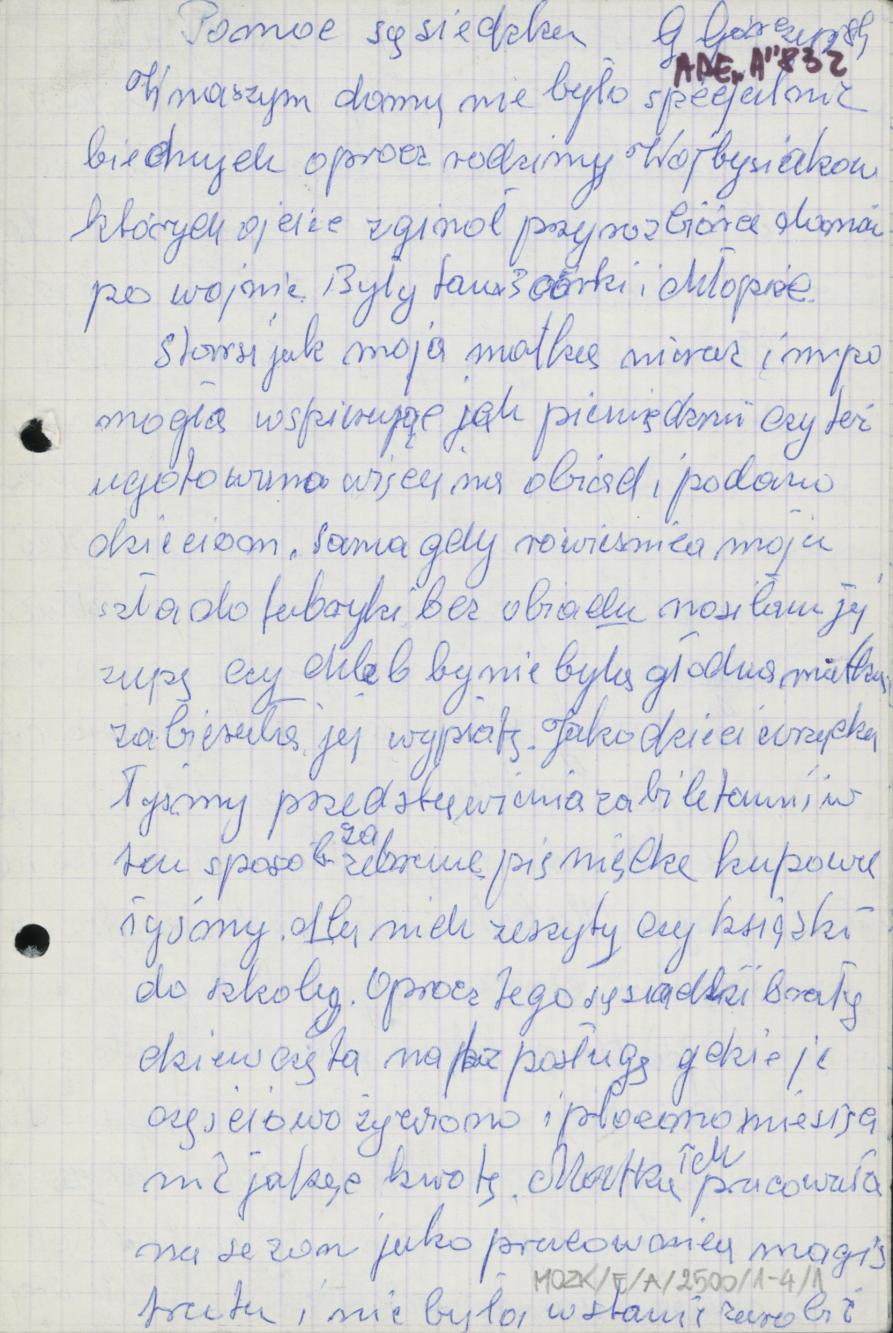 Pomoc sąsiedzka G Górczyński
ADE „A" 832
W naszym domu nie było specjalnie
biednych oprocz rodziny Wojtysiaków
których ojciec zginoł przy rozbiórce domów
po wojnie. Były tam 3 córki i chłopiec.
Starsi jak moja matka nieraz im po
mogła wspierając jak pieniędzmi czy też
ugotowano więcej na obiad i podano
dzieciom. Sama gdy rowieśnica moja
szła do fabryki bez obiadu nosiłam jej
zupę czy chleb by nie była głodna, matka
zabierała jej wypłatę. Jako dzieci urządza
łyśmy przedstawienia za biletami i w
ten sposob za zebrane pieniądze kupowa
łyśmy dla nich zeszyty czy książki
do szkoły. Oprocz tego sąsiadki brały
dziewczęta na posługę gdzie je
częściowo żywiono i płacono miesięcz
nie jakąś kwotę. Matka ich pracowała
na sezon jako pracownica magis
tratu i nie była w stanie zarobić
MOZK/E/A/2500/1-4/1